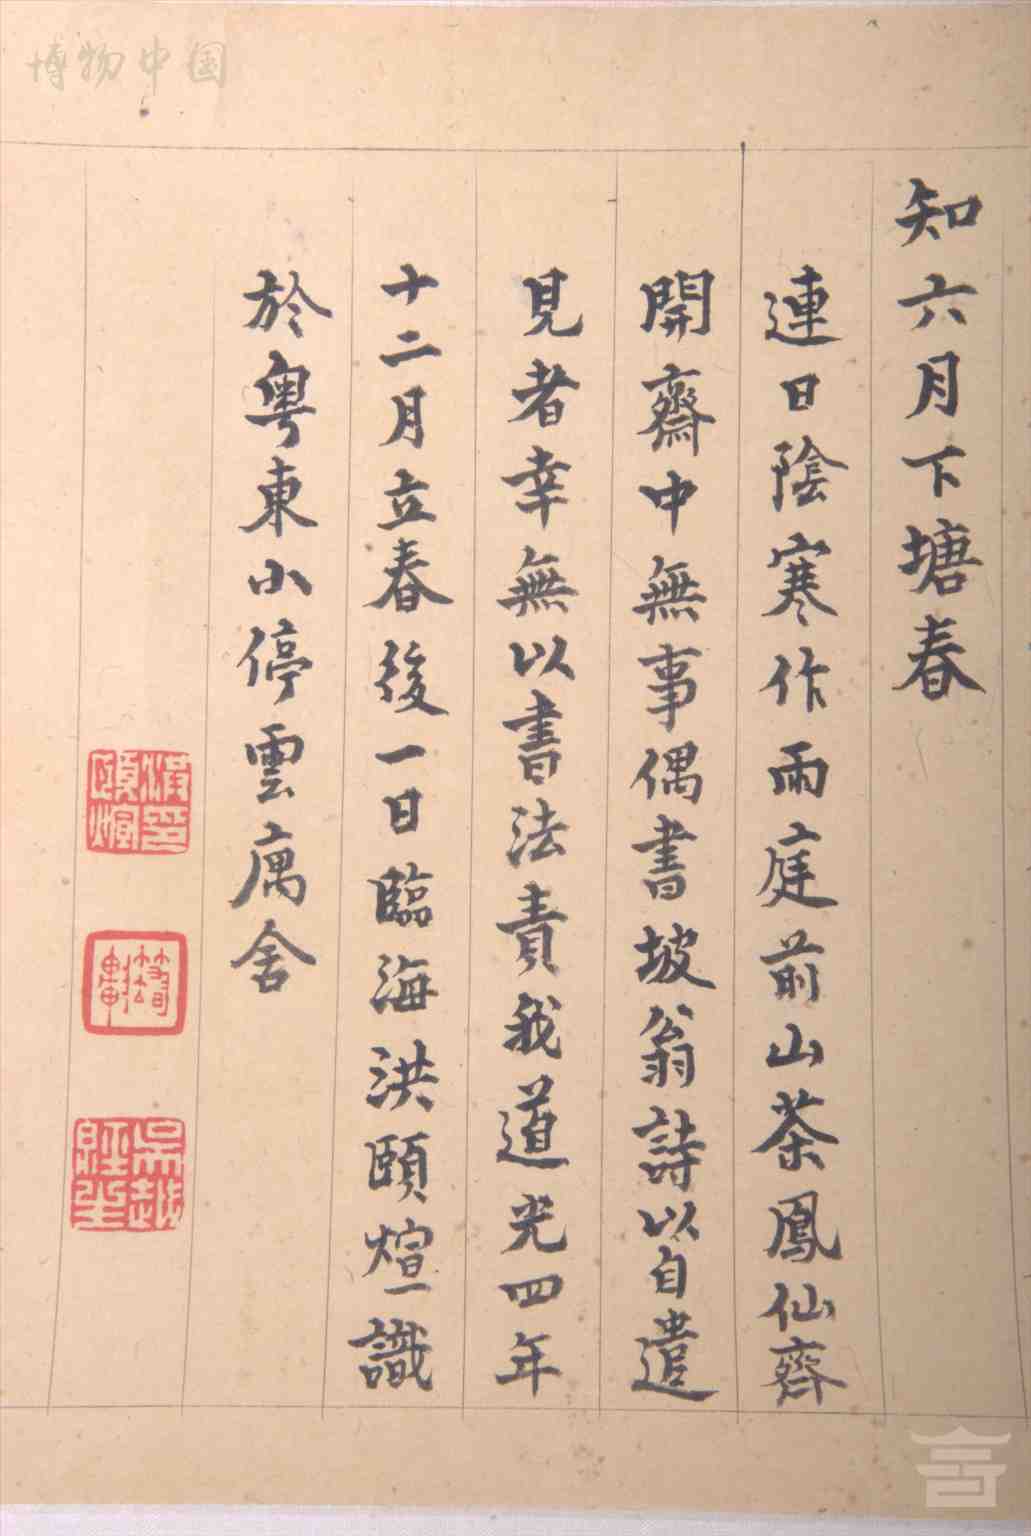 博物中国
知六月下塘春
連日陰寒作雨庭前山茶鳳仙齊
開齋中無事偶書坡翁詩以自遣
見者幸無以書法責我道光四年
十二月立春後一日臨海洪頤煊識
於粵東小停雲寓舍
洪印頤煊
筠軒